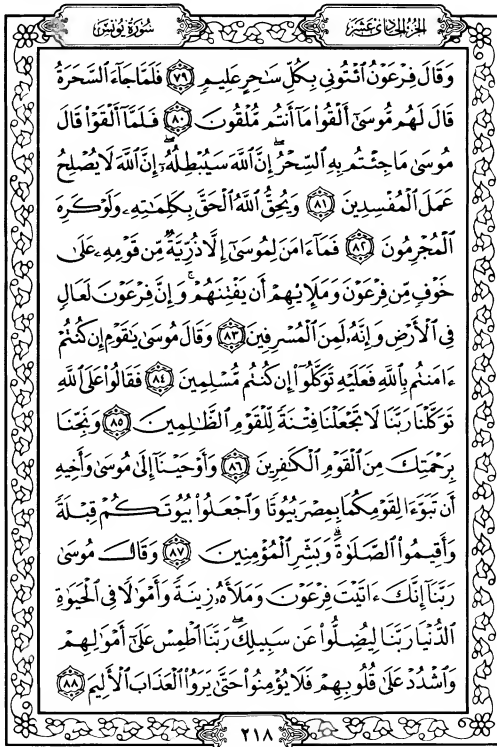 الجزء الحادي عشر
سورة يونس
وَقَالَ فِرْعَوْنُ ٱئْتُونِى بِكُلِّ سَٰحِرٍ عَلِيمٍ ٧٩ فَلَمَّا جَآءَ ٱلسَّحَرَةُ
قَالَ لَهُم مُّوسَىٰٓ أَلْقُوا۟ مَآ أَنتُم مُّلْقُونَ ٨٠ فَلَمَّآ أَلْقَوْا۟ قَالَ
مُوسَىٰ مَا جِئْتُم بِهِ ٱلسِّحْرُ ۖ إِنَّ ٱللَّهَ سَيُبْطِلُهُۥٓ ۖ إِنَّ ٱللَّهَ لَا يُصْلِحُ
عَمَلَ ٱلْمُفْسِدِينَ ٨١ وَيُحِقُّ ٱللَّهُ ٱلْحَقَّ بِكَلِمَٰتِهِۦ وَلَوْ كَرِهَ
ٱلْمُجْرِمُونَ ٨٢ فَمَآ ءَامَنَ لِمُوسَىٰٓ إِلَّا ذُرِّيَّةٌ مِّن قَوْمِهِۦ عَلَىٰ
خَوْفٍ مِّن فِرْعَوْنَ وَمَلَإِي۟هِمْ أَن يَفْتِنَهُمْ ۚ وَإِنَّ فِرْعَوْنَ لَعَالٍ
فِى ٱلْأَرْضِ وَإِنَّهُۥ لَمِنَ ٱلْمُسْرِفِينَ ٨٣ وَقَالَ مُوسَىٰ يَٰقَوْمِ إِن كُنتُمْ
ءَامَنتُم بِٱللَّهِ فَعَلَيْهِ تَوَكَّلُوٓا۟ إِن كُنتُم مُّسْلِمِينَ ٨٤ فَقَالُوا۟ عَلَى ٱللَّهِ
تَوَكَّلْنَا رَبَّنَا لَا تَجْعَلْنَا فِتْنَةً لِّلْقَوْمِ ٱلظَّٰلِمِينَ ٨٥ وَنَجِّنَا
بِرَحْمَتِكَ مِنَ ٱلْقَوْمِ ٱلْكَٰفِرِينَ ٨٦ وَأَوْحَيْنَآ إِلَىٰ مُوسَىٰ وَأَخِيهِ
أَن تَبَوَّءَا لِقَوْمِكُمَا بِمِصْرَ بُيُوتًا وَٱجْعَلُوا۟ بُيُوتَكُمْ قِبْلَةً
وَأَقِيمُوا۟ ٱلصَّلَوٰةَ ۗ وَبَشِّرِ ٱلْمُؤْمِنِينَ ٨٧ وَقَالَ مُوسَىٰ
رَبَّنَآ إِنَّكَ ءَاتَيْتَ فِرْعَوْنَ وَمَلَأَهُۥ زِينَةً وَأَمْوَٰلًا فِى ٱلْحَيَوٰةِ
ٱلدُّنْيَا رَبَّنَا لِيُضِلُّوا۟ عَن سَبِيلِكَ ۖ رَبَّنَا ٱطْمِسْ عَلَىٰٓ أَمْوَٰلِهِمْ
وَٱشْدُدْ عَلَىٰ قُلُوبِهِمْ فَلَا يُؤْمِنُوا۟ حَتَّىٰ يَرَوُا۟ ٱلْعَذَابَ ٱلْأَلِيمَ ٨٨
٢١٨